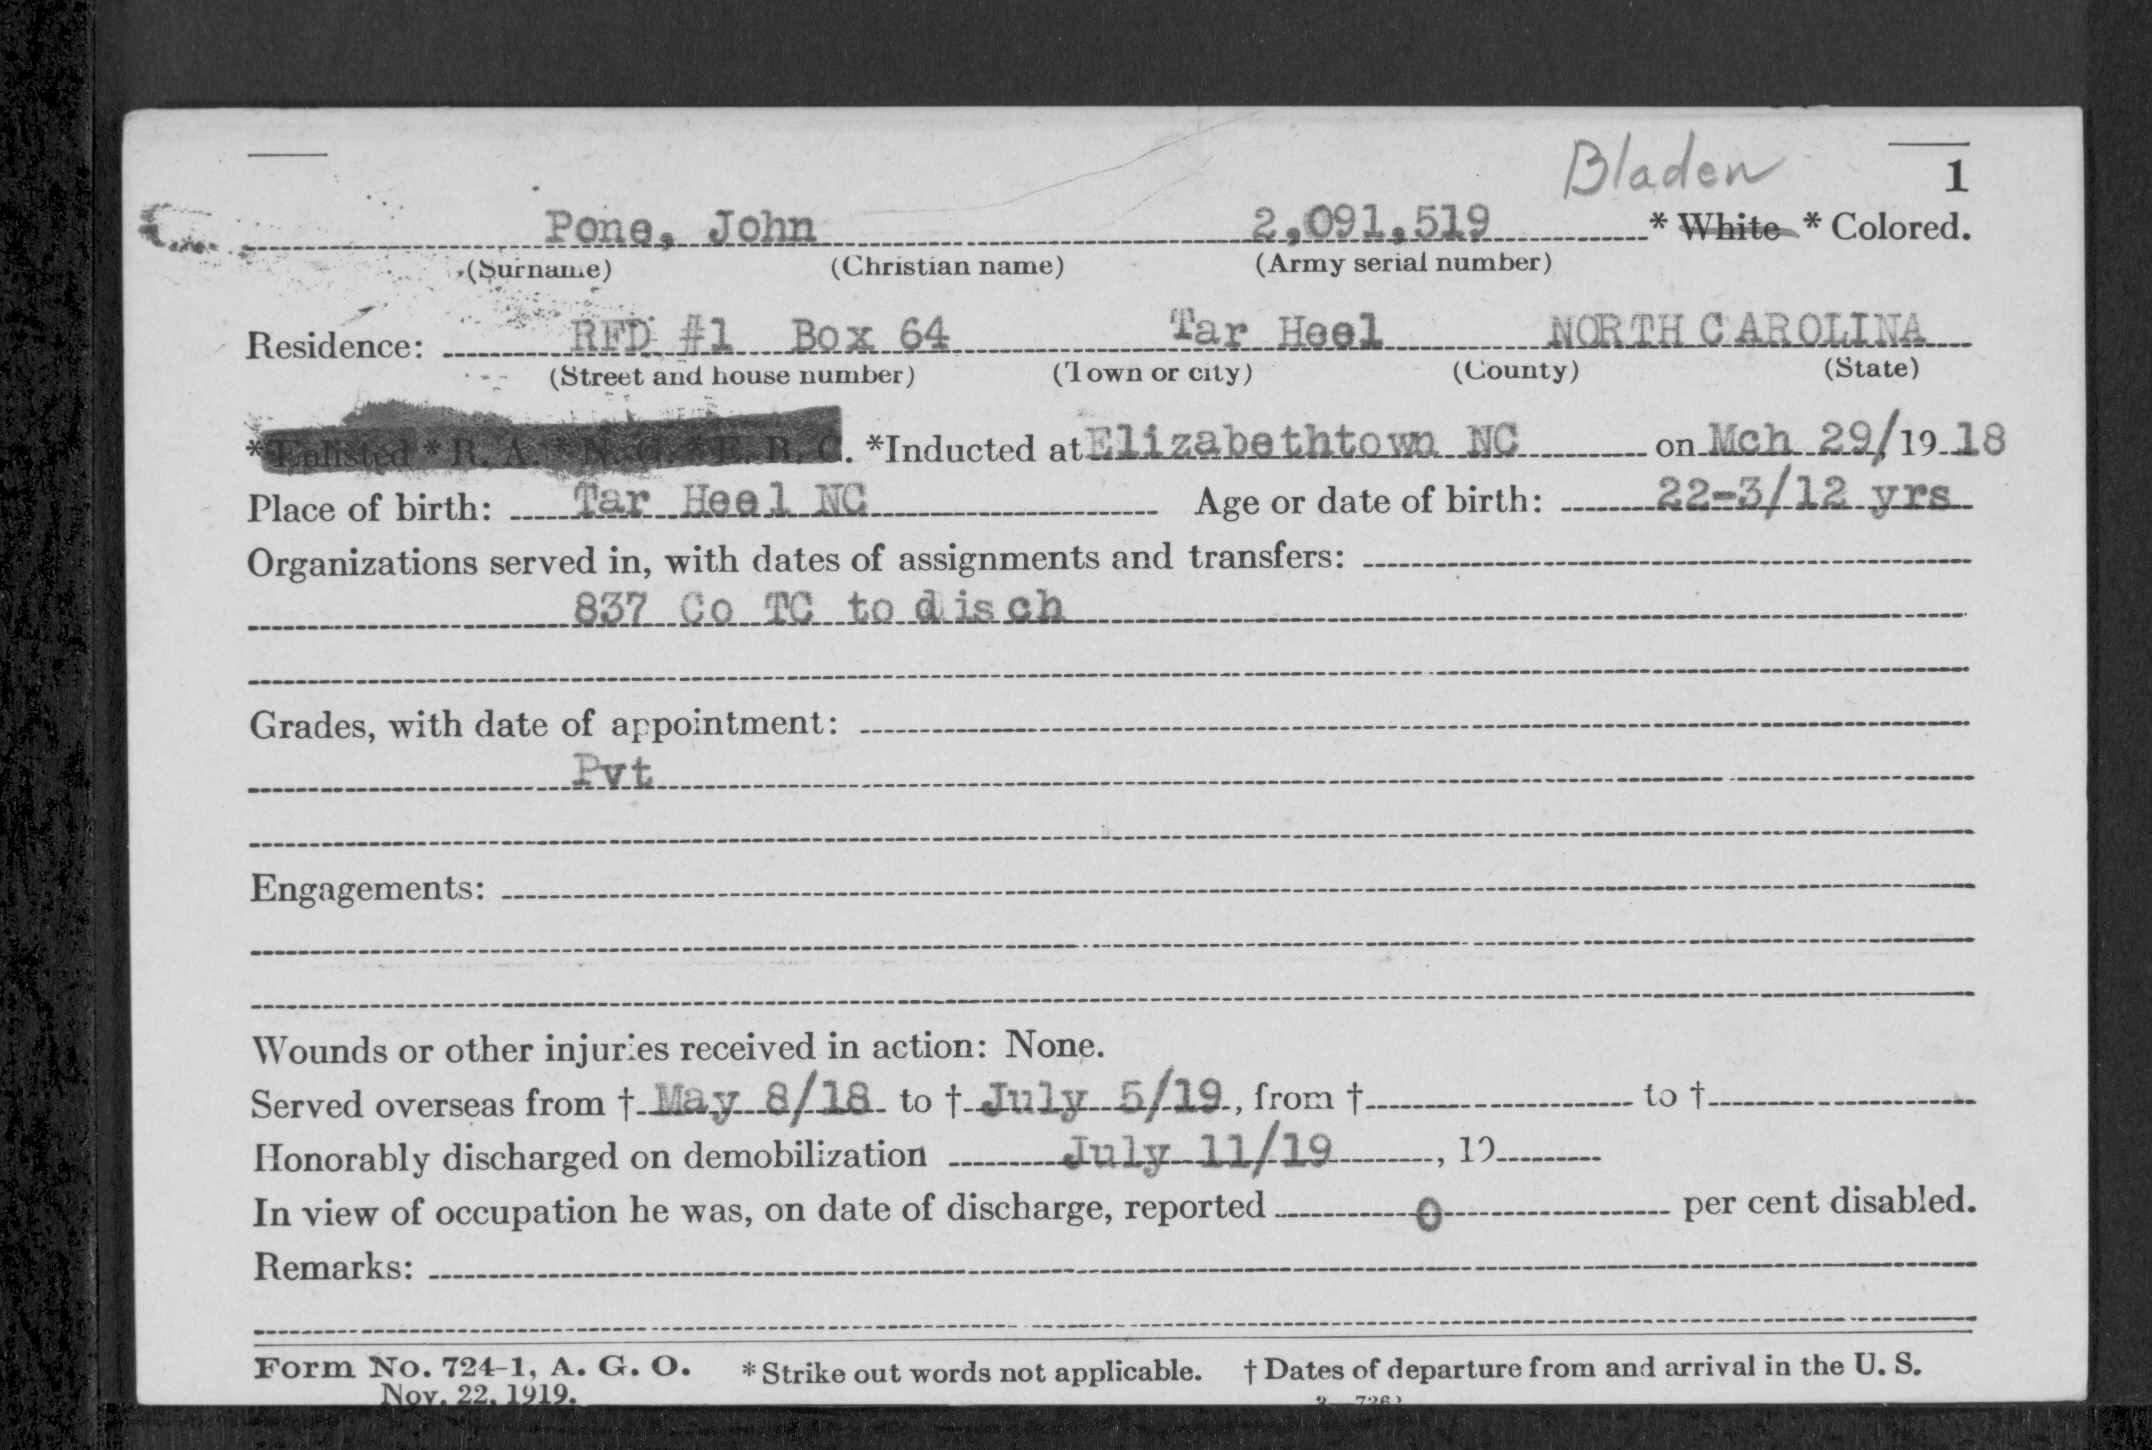 Bladen
1
Pone, John 2,091,519 * White * Colored.
(Surname) (Christian name) (Army serial number)
Residence: RFD #1 Box 64 Tar Heel NORTH CAROLINA
(Street and house number) (Town or city) (County) (State)
*Enlisted *R. A. *N. G. *E. R. C. *Inducted at Elizabethtown NC on Mch 29/, 19 18
Place of birth: Tar Heel NC Age or date of birth: 22-3/12 yrs
Organizations served in, with dates of assignments and transfers:
837 Co TC to disch
Grades, with date of appointment:
Pvt
Engagements:
Wounds or other injuries received in action: None.
Served overseas from † May 8/18 to † July 5/19, from † to †
Honorably discharged on demobilization July 11/19, 19
In view of occupation he was, on date of discharge, reported 0 per cent disabled.
Remarks:
Form No. 724-1, A. G. O. * Strike out words not applicable. † Dates of departure from and arrival in the U. S.
Nov. 22, 1919.